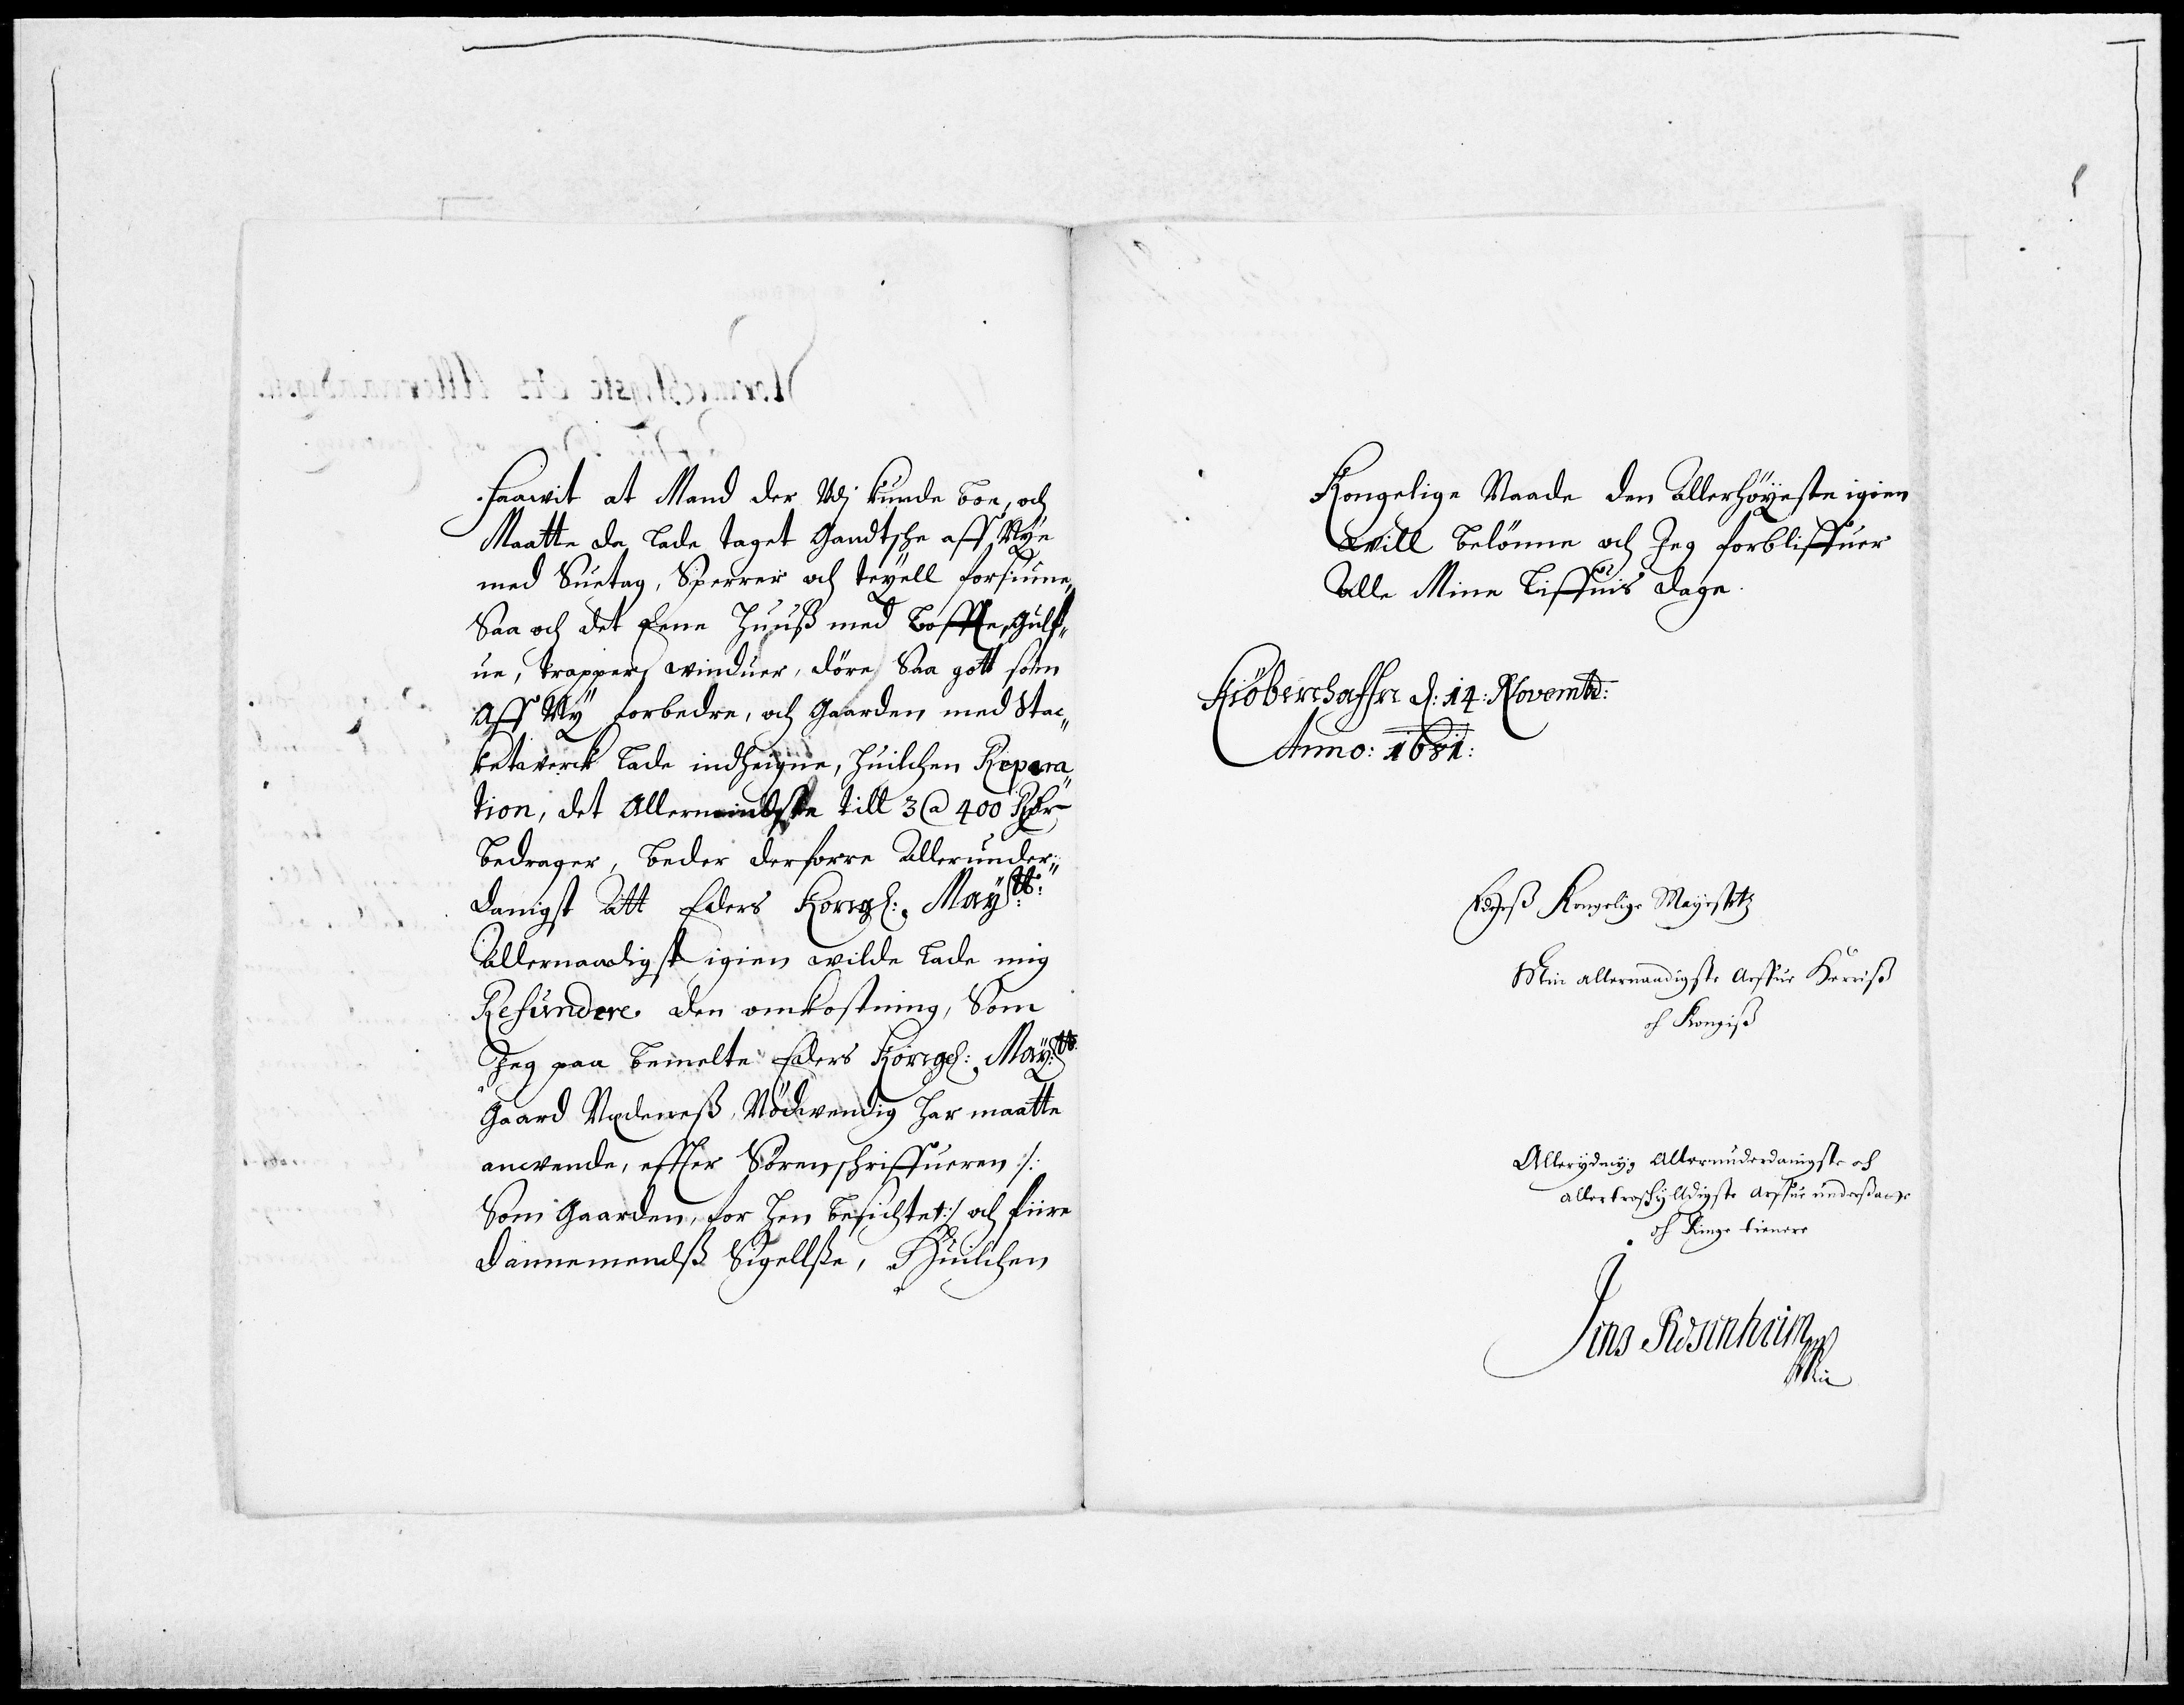 saawit at Mand der Udj kunde boe, och
Maatte da lade taget Gandtsche aff Nÿe
med Suetag, Sperrer och teÿell forsiune,,
Saa och det Eene Huuß med Lofftte, Gulf,,
ue, trapper, winduer, döre, Saa gott som
Aff Nÿ forbedre, och Gaarden med Stac,,
ketwerck lade indheigne, huilchen Repara,,
tion, det Allermindste till 3 a 400 Rdr
bedrager, beder derforre Allerunder,,
danigst Att Eders Kongel: Maÿtt:
Allernaadigst igien wilde lade mig
Refundere den omkostning, Som
Jeg paa bemelte Eders Kongel: Maÿtt:
Gaard Nödwendig har maatte
anwende, effter Sörenschriffueren /:
Som Gaarden, for hen besichtet :/ och fiire
dannemendß Sigellße, Huilchen
Kongelige Naade den Allerhöÿeste igien
will belönne och Jeg forbliffuer
Alle Mine Liffuis dage.
Kiöbenhaffn d: 14: Novemb:
Anno: 1681:
Ederß Kongelige Mayestetz
Min allernaadigste Arffue Herriß
oh Kongiß
Allerydmyg Allerunderdanigste oh
allertroschÿlldigste Arffue undersaatte
oh Ringe tienere
Jens Rosenheim